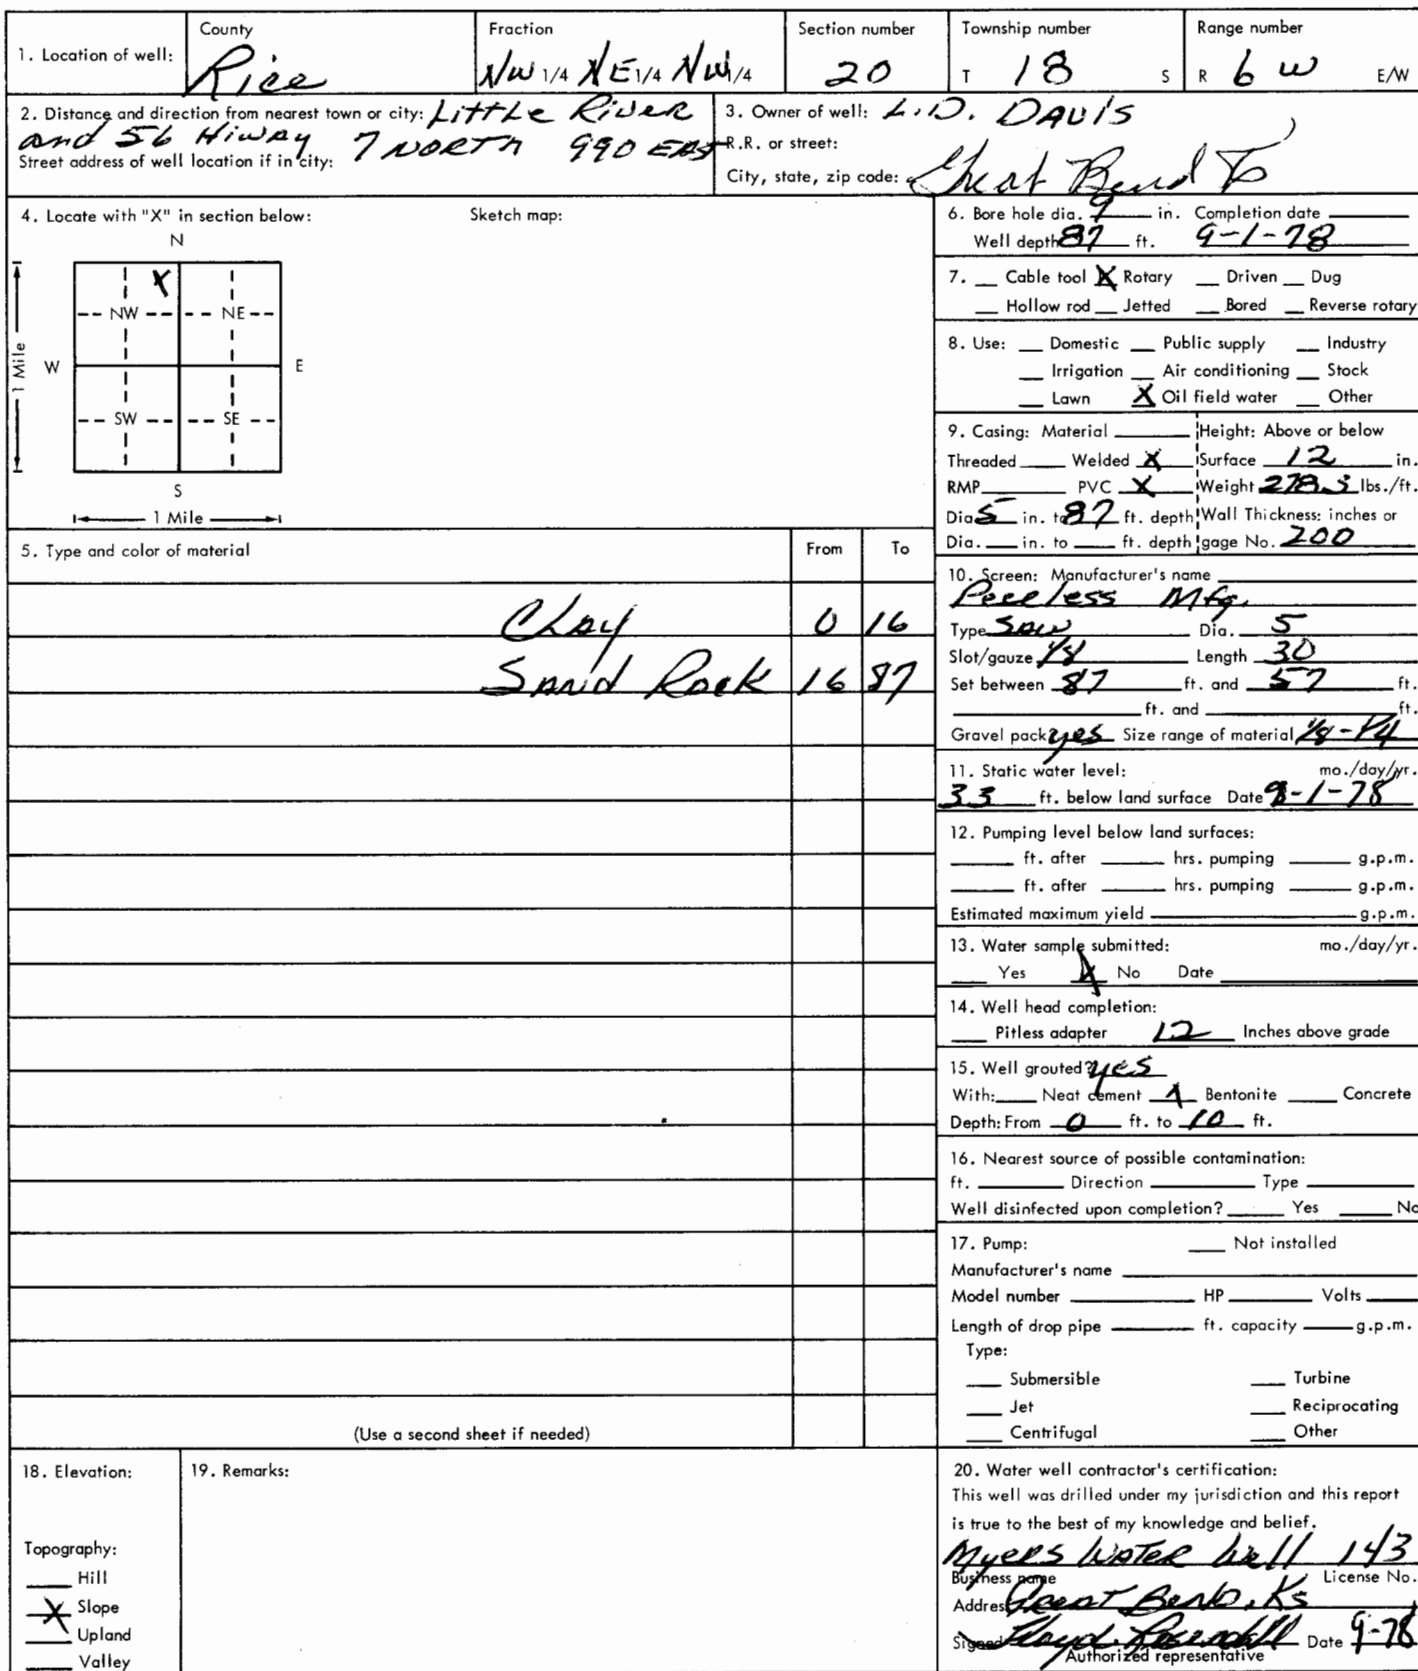 1. Location of well: County Rice Fraction NW 1/4 NE 1/4 NW 1/4 Section number 20 Township number T 18 S Range number R 6 W E/W
2. Distance and direction from nearest town or city: Little River
and 56 Hiway 7 North 990 East
Street address of well location if in city:
3. Owner of well: L.D. Davis
R.R. or street:
City, state, zip code: Great Bend
4. Locate with "X" in section below: Sketch map:
N
X
NW NE
1 Mile W E
SW SE
S
1 Mile
5. Type and color of material From To
Clay 0 16
Sand Rock 16 87
(Use a second sheet if needed)
6. Bore hole dia. 9 in. Completion date
Well depth 87 ft. 9-1-78
7. Cable tool X Rotary Driven Dug
Hollow rod Jetted Bored Reverse rotary
8. Use: Domestic Public supply Industry
Irrigation Air conditioning Stock
Lawn X Oil field water Other
9. Casing: Material Height: Above or below
Threaded Welded X Surface 12 in.
RMP PVC X Weight 278.3 lbs./ft.
Dia 5 in. to 87 ft. depth Wall Thickness: inches or
Dia. in. to ft. depth gage No. 200
10. Screen: Manufacturer's name
Peerless Mfg.
Type Saw Dia. 5
Slot/gauze 1/8 Length 30
Set between 87 ft. and 57 ft.
ft. and ft.
Gravel pack yes Size range of material 1/8 - 1/4
11. Static water level: mo./day/yr.
33 ft. below land surface Date 9-1-78
12. Pumping level below land surfaces:
ft. after hrs. pumping g.p.m.
ft. after hrs. pumping g.p.m.
Estimated maximum yield g.p.m.
13. Water sample submitted: mo./day/yr.
Yes X No Date
14. Well head completion:
Pitless adapter 12 Inches above grade
15. Well grouted? yes
With: Neat cement X Bentonite Concrete
Depth: From 0 ft. to 10 ft.
16. Nearest source of possible contamination:
ft. Direction Type
Well disinfected upon completion? Yes No
17. Pump: Not installed
Manufacturer's name
Model number HP Volts
Length of drop pipe ft. capacity g.p.m.
Type:
Submersible Turbine
Jet Reciprocating
Centrifugal Other
18. Elevation:
Topography:
Hill
X Slope
Upland
Valley
19. Remarks:
20. Water well contractor's certification:
This well was drilled under my jurisdiction and this report
is true to the best of my knowledge and belief.
Myers Water Well 143
Business name License No.
Address Great Bend, Ks
Signed Floyd Rosendall Date 9-78
Authorized representative